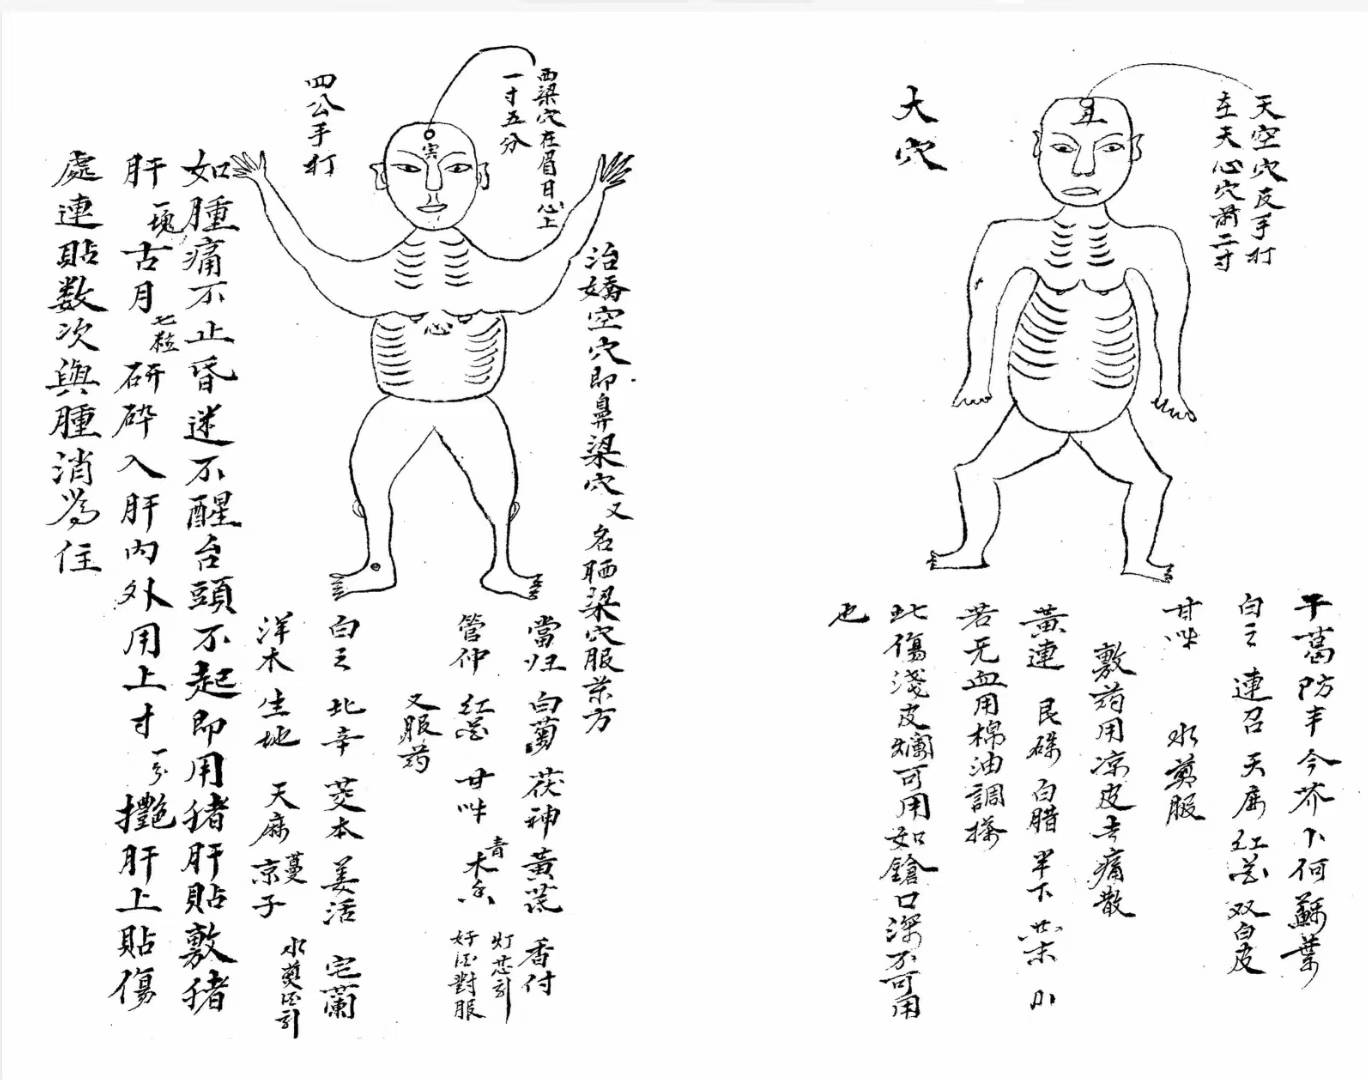 天空穴反手打
在天心穴前二寸
大穴
干葛防丰今芥卜何蘇葉
白芷連召天麻红花双白皮
甘呌
水煎服
敷药用凉皮去痛散
黃連 民硃 白腊 半下 共末
若无血用棉油調搽
此傷淺皮爛可用如鎗口深不可用
也
西梁穴在眉目心上
一寸五分
四公手打
心
治嬌空穴即鼻梁穴又名晒梁穴服茶方
當归 白菊 茯神 黃芪 香付
管仲 红花 甘呌 青木香
灯芯引
好酒對服
又服药
白芷 北辛 荽本 姜活 宅蘭
洋木 生地 天麻 蔓京子
水煎酒引
如腫痛不止昏迷不醒台頭不起即用猪肝貼敷猪
肝一塊古月七粒研碎入肝內外用上寸一分艷肝上貼傷
處連貼数次與腫消為住